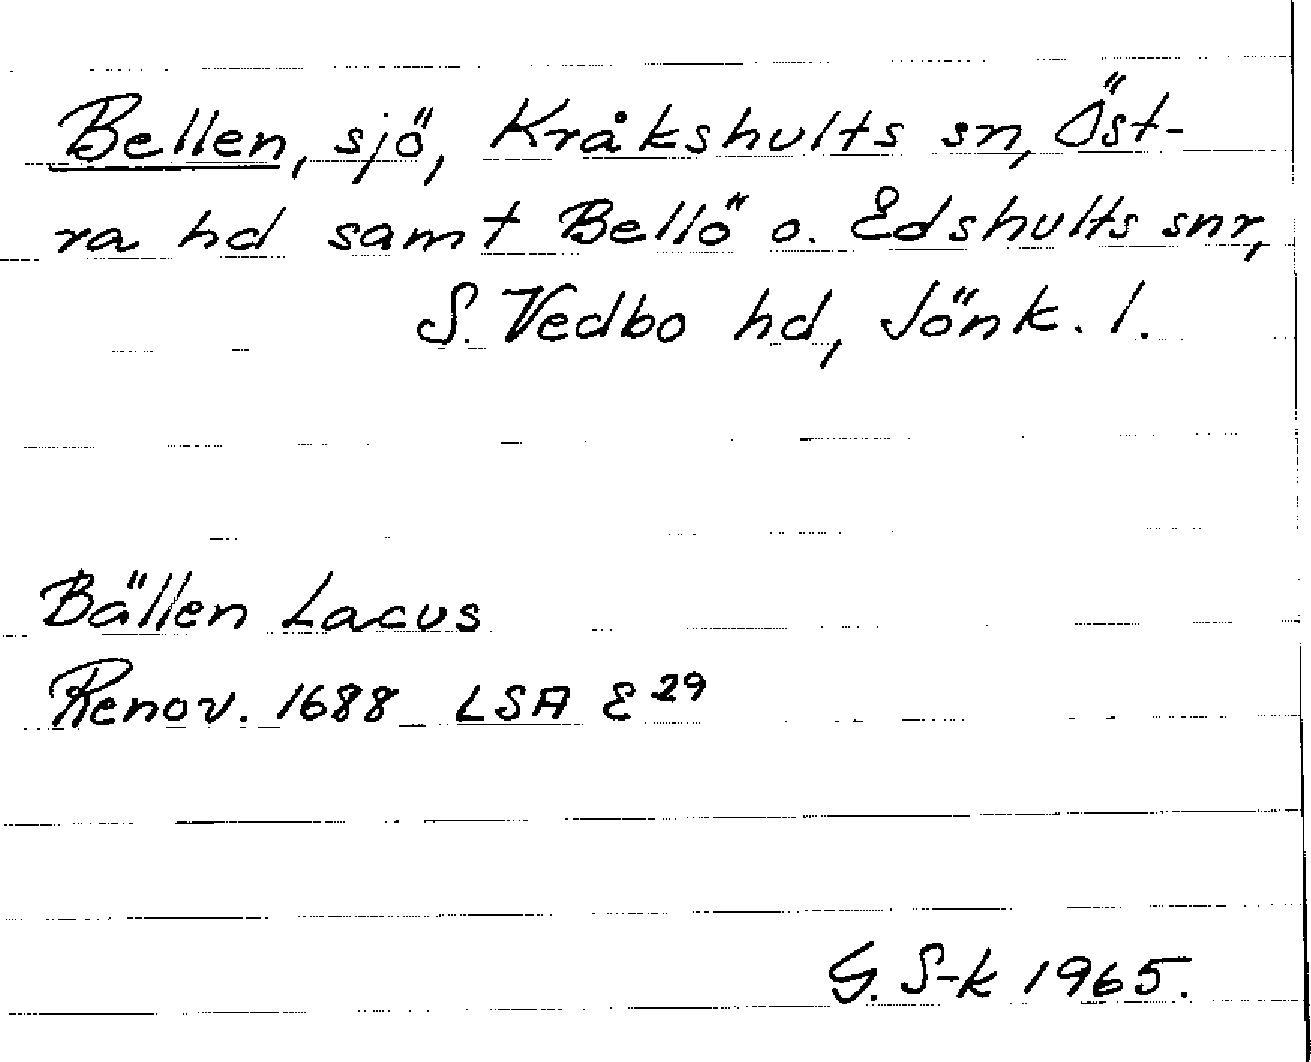 Bellen, sjö, Kråkshults sn, Öst-
ra hd samt Bellö o. Edshults snr,
S. Vedbo hd, Jönk. l.
Bällen Lacus
Renov. 1688 LSA E 29
G. S-k 1965.